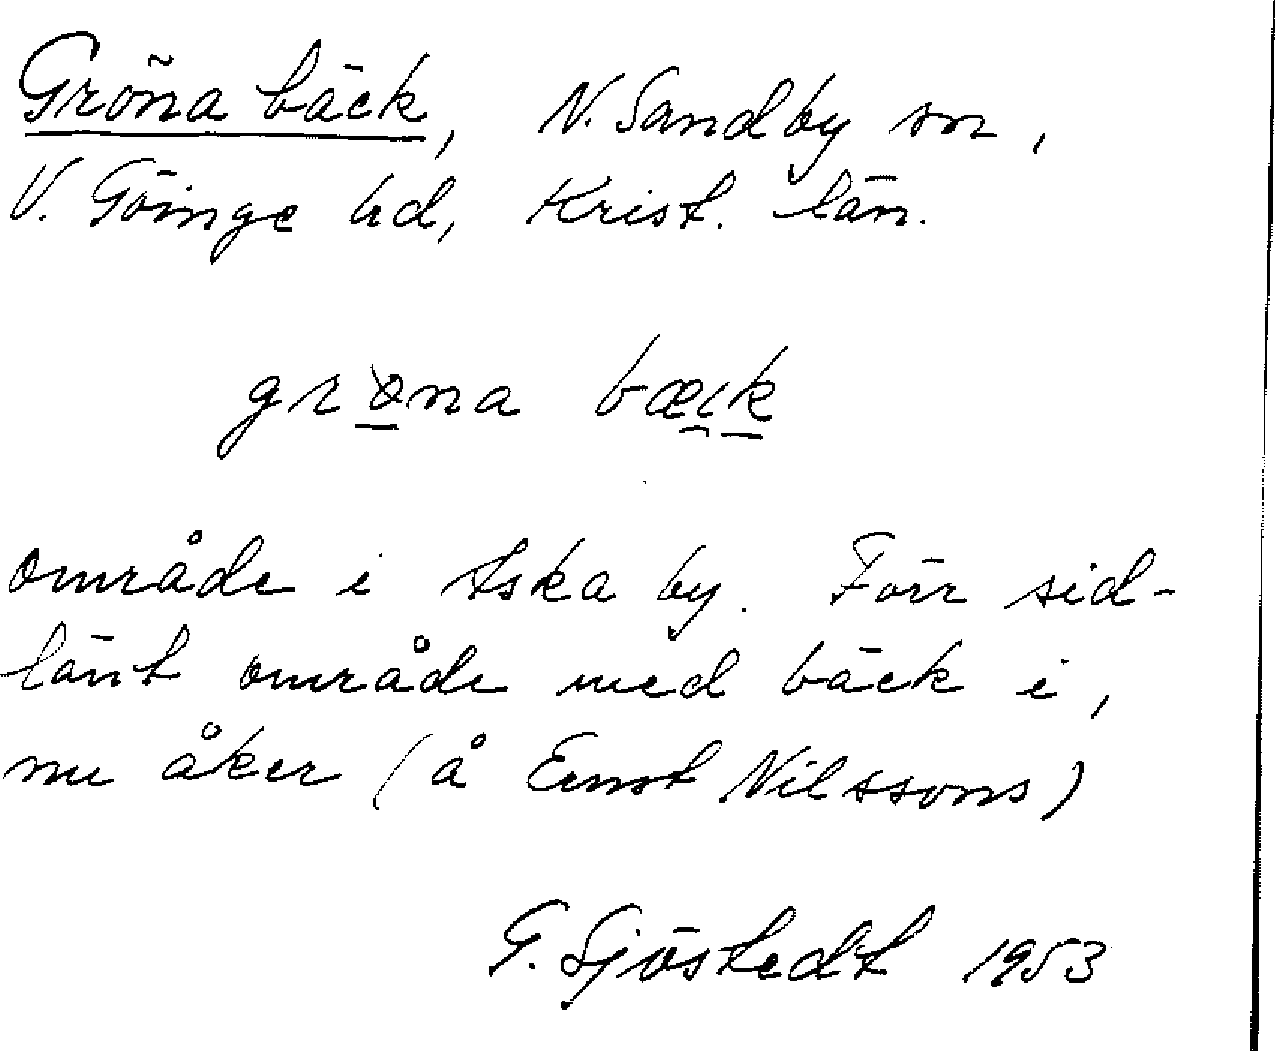 Gröna bäck, N. Sandby sn,
V. Göinge hd, Krist. län.
grøna bæi̯k
område i Aska by. Förr sid-
länt område med bäck i,
nu åker (å Ernst Nilssons)
G. Sjöstedt 1953